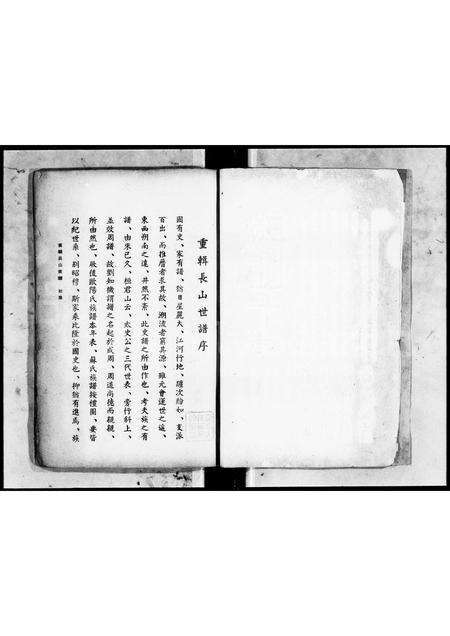 重輯長山世譜序
國有史、家有譜、猶日星麗天、江河行地、躔次紛如、支派
百出、而推曆者求其故、溯流者窮其源、雖元會運世之遠、
東西朔南之遠、井然不紊、此史譜之所由作也、考夫族之有
譜、由來已久、桓君山云、太史公之三代世表、旁行斜上、
並效周譜、故劉知幾謂譜之名起於成周、周道尚德而親親、
所由然也、厥後歐陽氏族譜本年表、蘇氏族譜按禮圖、要皆
以紀世系、別昭穆、斯家乘比隆於國史也、抑猶有進焉、族
重輯長山世譜 世序